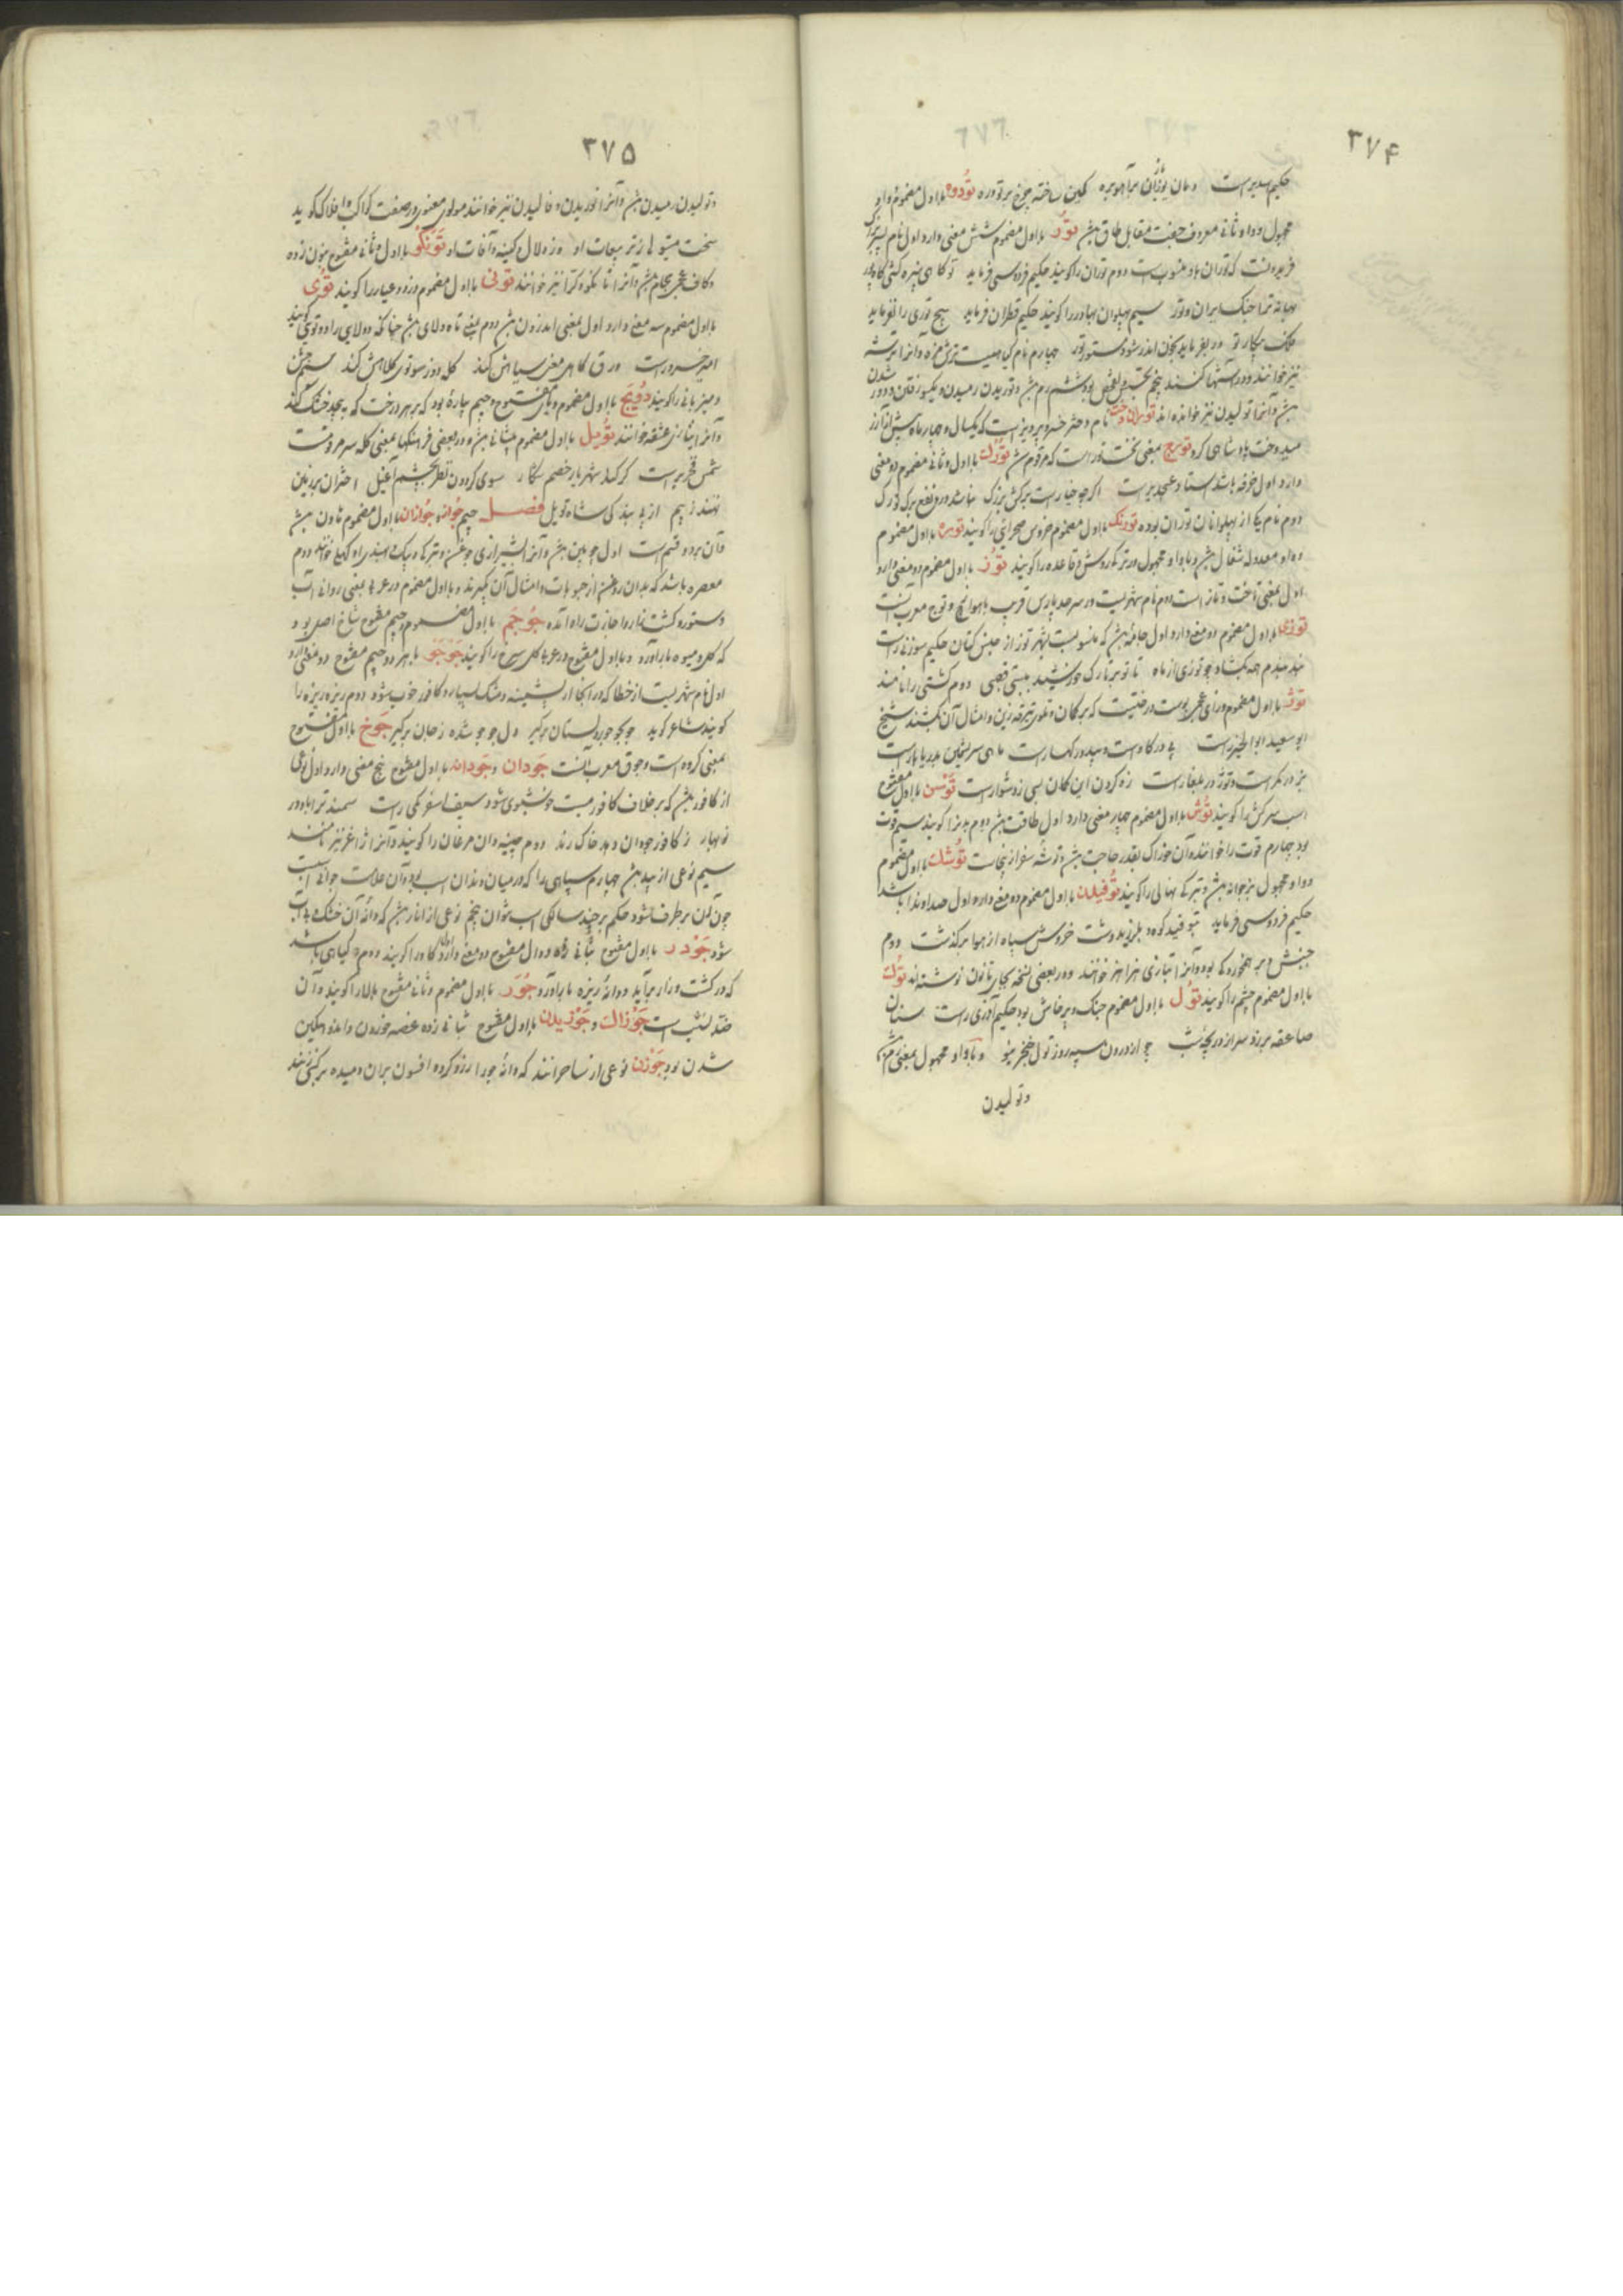 ۳۷۴
حکیم سدیر است و مان یوزان بر آهوبره کمین ساخته چرخ بر توره توده بااول مضموم و واو
مجهول و دواو ثانی معروف جفت مقابل طاق بش تور بااول مضموم شش معنی دارد اول نام پسر بزرگ
فریدونست که توران باو منسوب ست دوم توران را گویند حکیم فردوسی فرماید تو کاهی
بهانه ترا جنک ایران و تور سیم پهلوان بهادر را گویند حکیم قطران فرماید هیچ توری را نفرماید
فلک پیکار تو ور بفرماید بخون اندر شود مستور تور چهارم نام کیاهیست ترش مزه و آنرا ترشه
نیز خوانند و در آشها کنند پنجم تجسس و تفحص بود ششم رم بش و توریدن رمیدن و یکسو رفتن و دور شدن
بش و آنرا تولیدن نیز خوانده اند توران دخت نام دختر خسرو پرویز است که یکسال و چهار ماه پیش از آزر
میدخت پادشاهی کرد تورج بمعنی نخست تور است که مرقوم شد تورک بااول و ثانی مضموم دو معنی
دارد اول خرفه باشد استاد عسجدی راست اگر چو خیار است برکش بزرگ نباشد در و نفع برک تورک
دوم نام یکی از پهلوانان توران بوده تورنک بااول مضموم خروس صحرائی را گویند توره بااول مضموم
و واو معدوله شغال بش و با واو مجهول در ترکی روش و قاعده را گویند توز بااول مضموم دو معنی دارد
اول بمعنی تاخت و تاز است دوم نام شهریست در سرحد پارس قریب باهواز و توج معرب آنست
توزی بااول مضموم دو معنی دارد اول جامه بش که منسوبست بشهر توز از جنس کتان حکیم سوزنی راست
دوم کشتی را نامند
توژ بااول مضموم و زای عجمی پوست درختیست که بر کمان و تیر و زین و امثال آن کشند شیخ
ابو سعید ابو الخیر راست پی در گاو است و سپید در کهسار است ماهی سریشمین بدریا بار است
بز در کمر است و توژ در بلغار است زه کردن این کمان بسی دشوار است توسن بااول مفتوح
اسب سرکش را گویند توش بااول مضموم چهار معنی دارد اول طاقت بش دوم بدن را گویند سیم قوت
بود چهارم قوت را خوانند و آن خوراک بقدر حاجت بش و توشه سفر از پنجاست توشک بااول مضموم
و واو مجهول بزجوانه بش و بترکی نهالی را گویند توفیدن بااول مضموم دو معنی دارد اول صدا و ندا باشد
حکیم فردوسی فرماید بتوفید کوه و بلرزید دشت خروش سپاه از هوا برگذشت دوم
جنبش و بر هم خوردگی بود و آنرا بتازی هزاهز خوانند و در بعضی نسخه بجای تا نون نوشته اند توک
بااول مضموم چشم را گویند تول بااول مضموم جنک و پرخاش بود حکیم آذری راست سنان
صاعقه برزد سر از دریچه شب چو از درون سپه روز تول خنجر و با واو مجهول بمعنی رم بش
و تولیدن
۳۷۵
و تولیدن رمیدن بش و آنرا توریدن و فالیدن نیز خوانند مولوی معنوی در صفت کواکب و افلاک گوید
سخت میتولی ز تربیعات او وز دلال و کینه و آفات او تونکو بااول و ثانی مفتوح بنون زده
و کاف عجمی حجام بش و آنرا تانکو و کرا نیز خوانند تونی بااول مضموم دزد و عیار را گویند توی
بااول مضموم سه معنی دارد اول بمعنی اندرون بش دوم بمعنی تاه و لای بش چنانکه دولای را دو توی گویند
امیر خسرو راست ورق کاهی معنی سیاهش کند کله دوز سو توی کلاهش کند سیم جشن
و میزبانی را گویند
و آنرا بتازی عشقه خوانند تویل بااول مضموم پیشانی بش و در بعضی فرهنکها بمعنی کله سر مرقومست
شمس فخری راست گر کند شهریار خصم شکار سوی گردون نظر بچشم آغیل اختران بر زمین
نهند ز بیم از پی بندگی شاه تویل فصل جیم جواز و جوازان بااول مضموم هاون بش
و آن بر دو قسم است اول چوبین بش و آنرا بشیرازی جوغن و بترکی دیبک و بهندی اوکهلی خوانند دوم
معصره باشد که بدان روغن از حبوبات و امثال آن گیرند و بااول مضموم در عربی بمعنی روائی آب
و ستور و کشت زار و اجازت راه آمده جوجم بااول مضموم و جیم مفتوح شاخ اصلی بود
که گل و میوه بار آورد و بااول مفتوح در عربی گل سرخ را گویند جوجو با هر دو جیم مفتوح دو معنی دارد
اول نام شهریست از خطا که در آنجا ابریشمینه و مشک بسیار و کافور خوب شود دوم ریزه ریزه را
گویند شاعر گوید جوجو جور دلستان برگیر دل جو جو شده ز جان برگیر جوخ بااول مفتوح
بمعنی گروه است و جوق معرب آنست جودان و جودانه بااول مفتوح پنج معنی دارد اول نوعی
از کافور بش که بر خلاف کافور میت خوشبوی شود سیف اسفرنکی راست سمند ترا بادود در
نوبهار ز کافور جودان دهد خاک رند دوم چینه دان مرغان را گویند و آنرا ژاغر نیز نامند
سیم نوعی از بید بش چهارم سیاهی را که در میان دندان اسب بود و آن علامت جوانی است
چون آن بر طرف شود حکم بر چند سالگی اسب نتوان پنجم نوعی از انار بش که دانه آن خشک و بی آب
شود جودر بااول مفتوح بثانی زده و دال مفتوح دو معنی دارد اول گاو را گویند دوم گیاهی باشد
که در کشت و زار برآید و دانه ریزه بار آورد جور بااول مضموم و ثانی مفتوح بالا را گویند و آن
ضد نشیب است جوزاک و جوزیدن بااول مفتوح بثانی زده غصه خوردن و اندوهگین
شدن بود جوزن نوعی از ساحرانند که دانه جو را زرد کرده و افسون بران دمیده بر کسی زنند